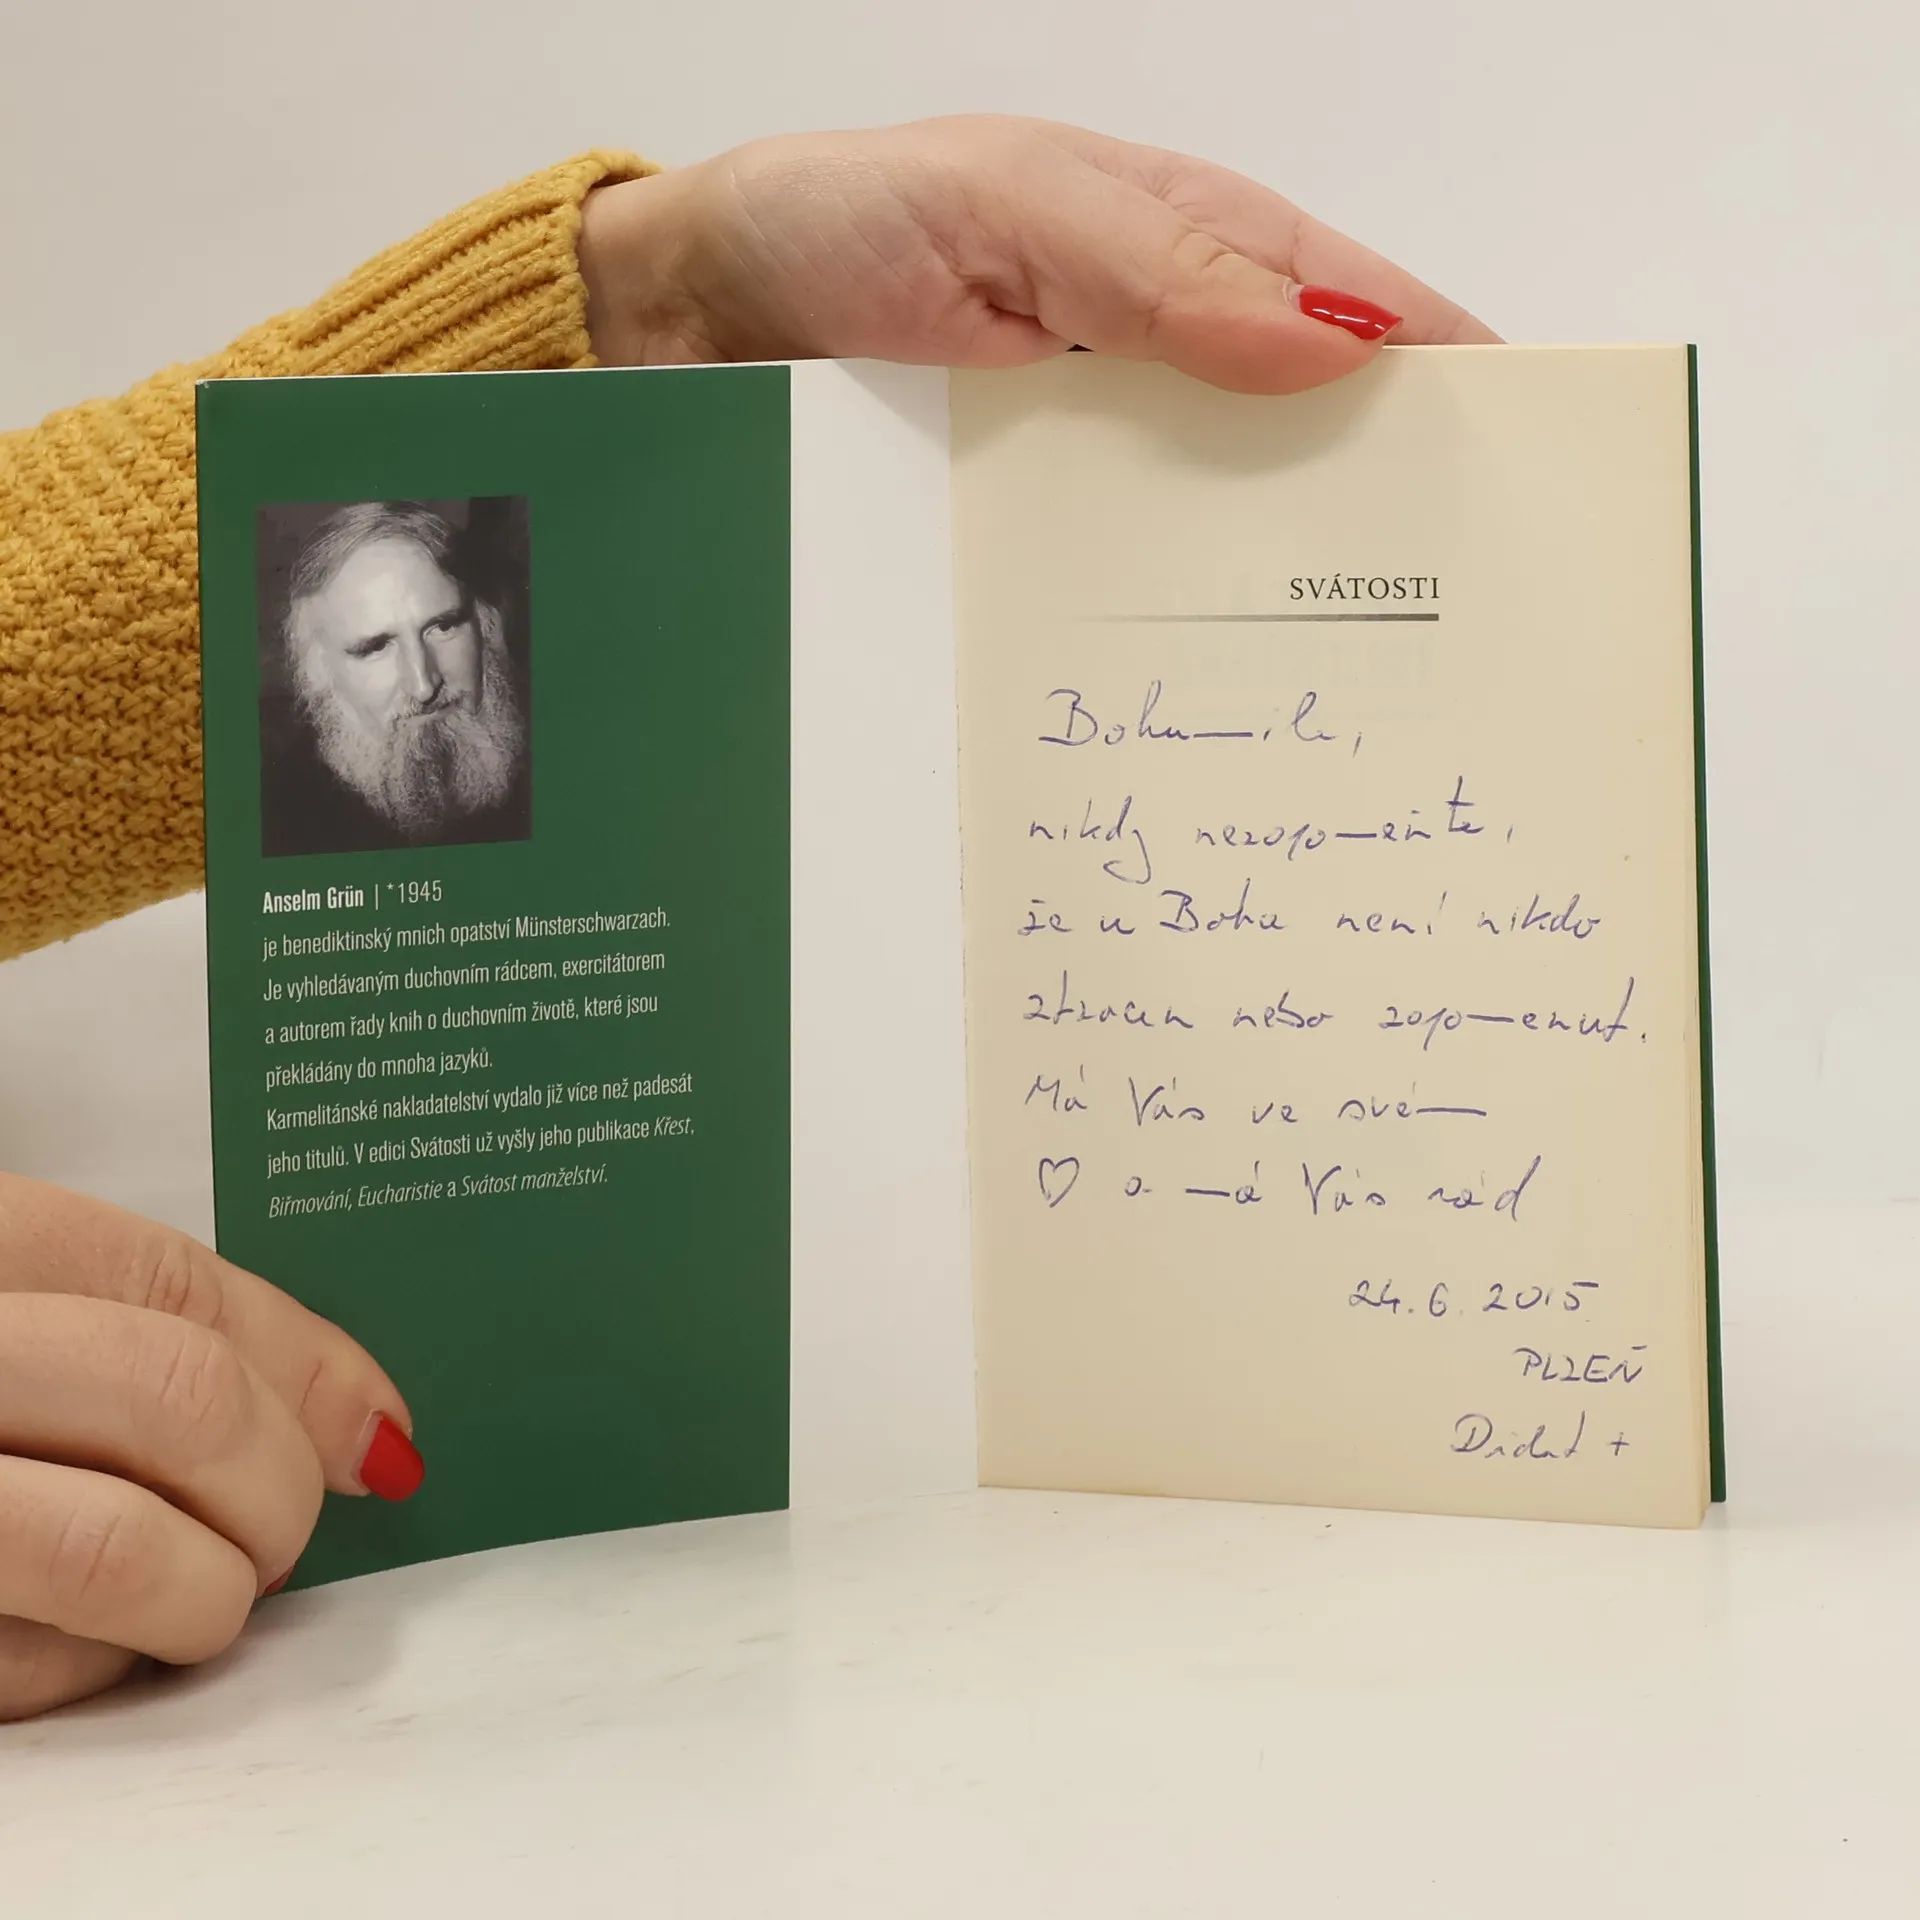 Anselm Grün | *1945
je benediktinský mnich opatství Münsterschwarzach.
Je vyhledávaným duchovním rádcem, exercitátorem
a autorem řady knih o duchovním životě, které jsou
překládány do mnoha jazyků.
Karmelitánské nakladatelství vydalo již více než padesát
jeho titulů. V edici Svátosti už vyšly jeho publikace Křest,
Biřmování, Eucharistie a Svátost manželství.
SVÁTOSTI
nikdy nezapomeňte,
že u Boha není nikdo
ztracen nebo zapomenut.
Má Vás ve svém
♡ a má Vás rád
24.6.2015
PLZEŇ